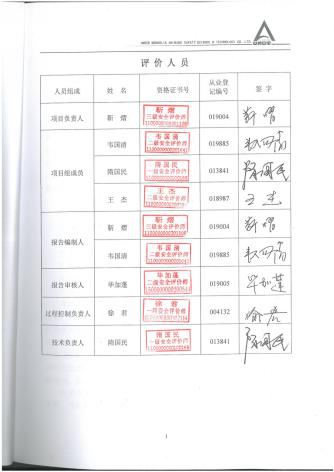 评 价 人 员
人员组成 姓 名 资格证书号 从业登记编号 签 字
项目负责人 靳 熠 靳 熠 三级安全评价师 019004 靳熠
项目组成员 韦国清 韦国清 二级安全评价师 019885 韦国清
隋国民 隋国民 一级安全评价师 013841 隋国民
王 杰 王 杰 二级安全评价师 018987 王杰
报告编制人 靳 熠 靳 熠 三级安全评价师 019004 靳熠
韦国清 韦国清 二级安全评价师 019885 韦国清
报告审核人 毕加蓬 毕加蓬 二级安全评价师 019005 毕加蓬
过程控制负责人 徐 君 徐 君 一级安全评价师 004132 徐君
技术负责人 隋国民 隋国民 一级安全评价师 013841 隋国民
1